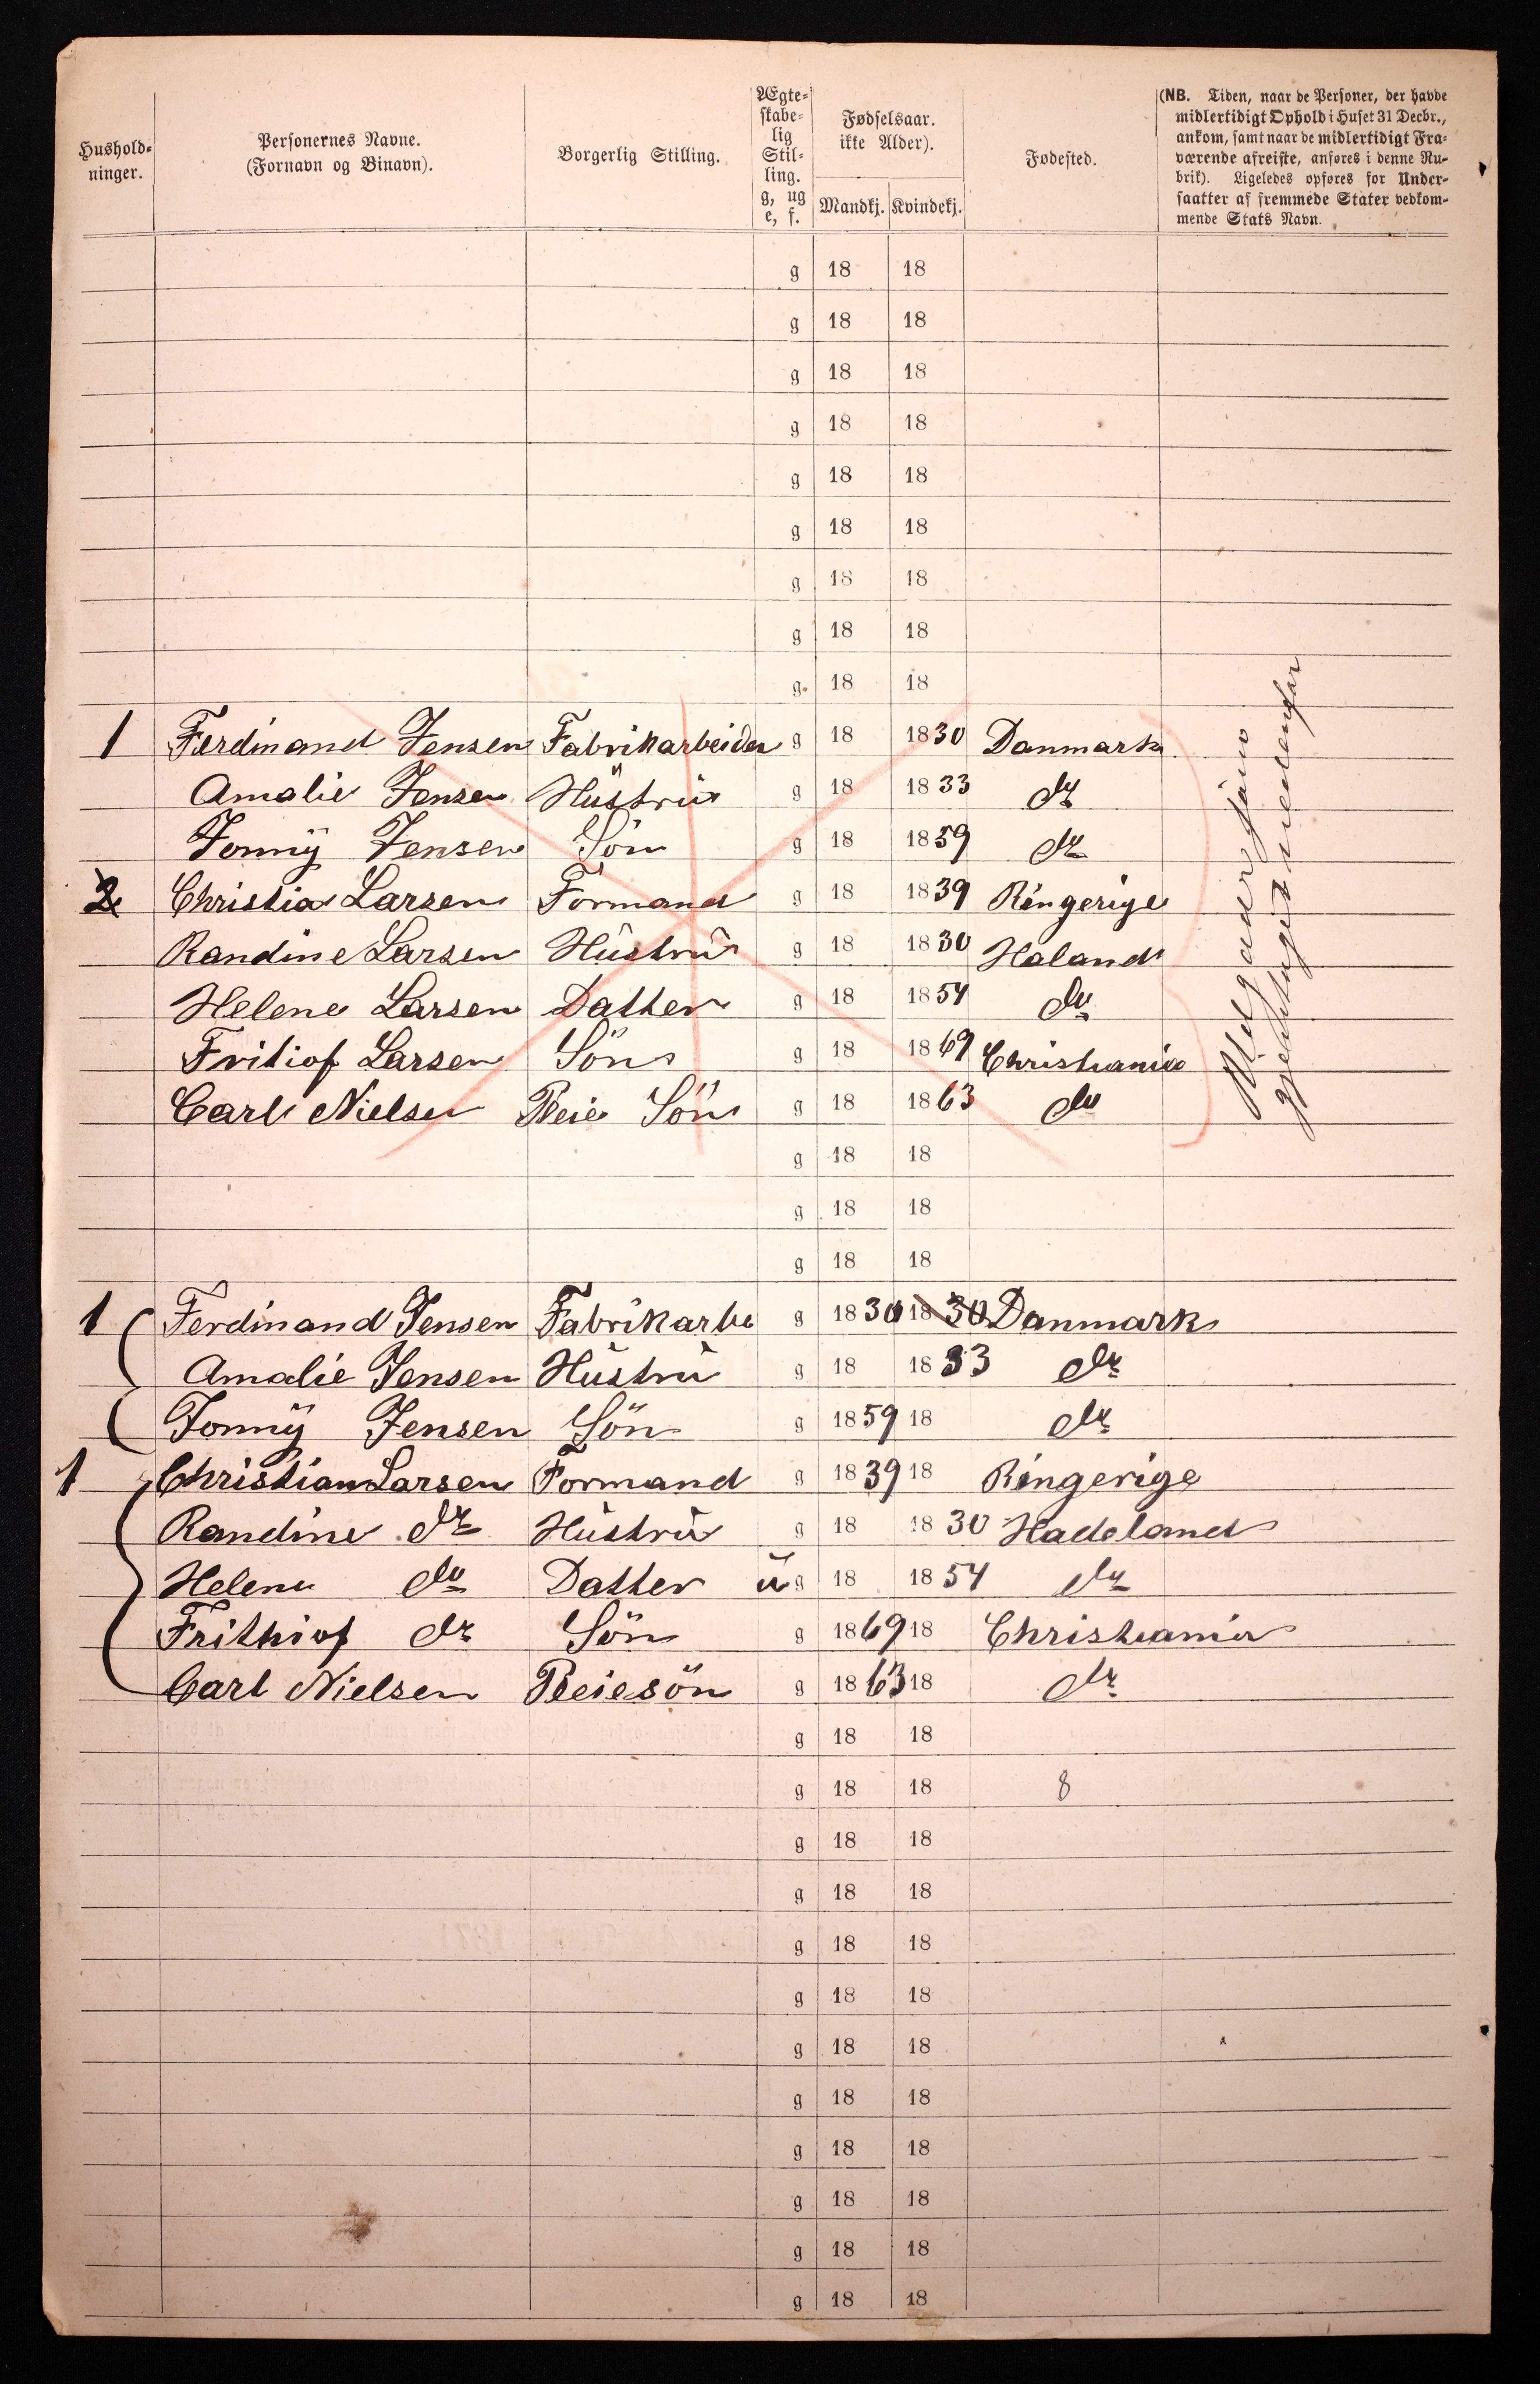 Hushold-
ninger.
Personernes Navne.
(Fornavn og Binavn).
Borgerlig Stilling.
Ægte-
skabe-
lig
Stil-
ling.
g, ug
e, f.
Fødselsaar.
ikke Alder).
Mandkj. Kvindekj.
Fødested.
(NB. Tiden, naar de Personer, der havde
midlertidigt Ophold i Huset 31 Decbr.,
ankom, samt naar de midlertidigt Fra-
værende afreiste, anføres i denne Ru-
brik). Ligeledes opføres for Under-
saatter af fremmede Stater vedkom-
mende Stats Navn.
g 18 18
g 18 18
g 18 18
g 18 18
g 18 18
g 18 18
g 18 18
g 18 18
g. 18 18
1 Ferdinand Jensen Fabrikarbeider g 18 1830 Danmark
Amalie Jensen Hüstrü g 18 1833 do
Jonnÿ Jensen Sön g 18 1859 do
2 Christian Larsen Formand g 18 1839 Ringerige
Randine Larsen Hüstrü g 18 1830 Haland
Helene Larsen Datter g 18 1854 do
Fritiof Larsen Sön g 18 1869 Christiania
Carl Nielsen Pleie Sön g 18 1863 do
g 18 18
g 18 18
g 18 18
1 Ferdinand Jensen Fabrikarbe g 1830 1830 Danmark
Amalie Jensen Hüstrü g 18 1833 do
Jonnÿ Jensen Sön g 1859 18 do
1 Christian Larsen Formand g 1839 18 Ringerige
Randine do Hüstrü g 18 1830 Hadeland
Helene do Datter ü g 18 1854 do
Frithiof do Sön g 1869 18 Christiania
Carl Nielsen Pleiesön g 1863 18 do
g 18 18
g 18 18 8
g 18 18
g 18 18
g 18 18
g 18 18
g 18 18
g 18 18
g 18 18
g 18 18
g 18 18
g 18 18